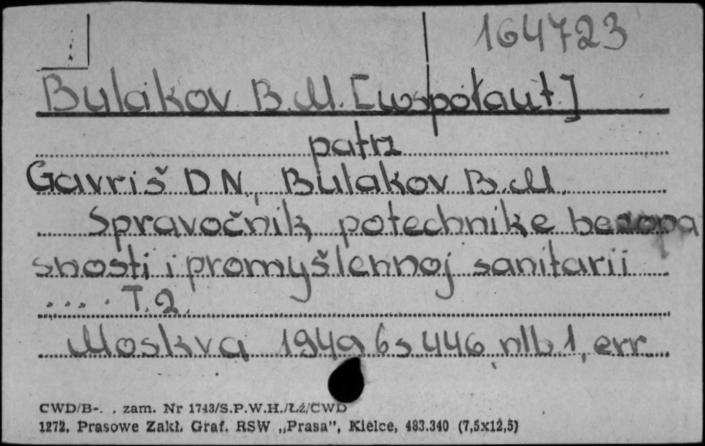 164723
Bulakov B.M. [współaut.]
patrz
Gavriš D.N., Bulakov B.M.
Spravočnik po technike bezopa
snosti i promyšlennoj sanitarii
.... T.2.
Moskva 1949 6 s 446, nlb 1, err.
CWD/B-. . zam. Nr 1743/S.P.W.H./Łź/CWD
1272. Prasowe Zakł. Graf. RSW „Prasa”, Kielce, 483.340 (7,5x12,5)